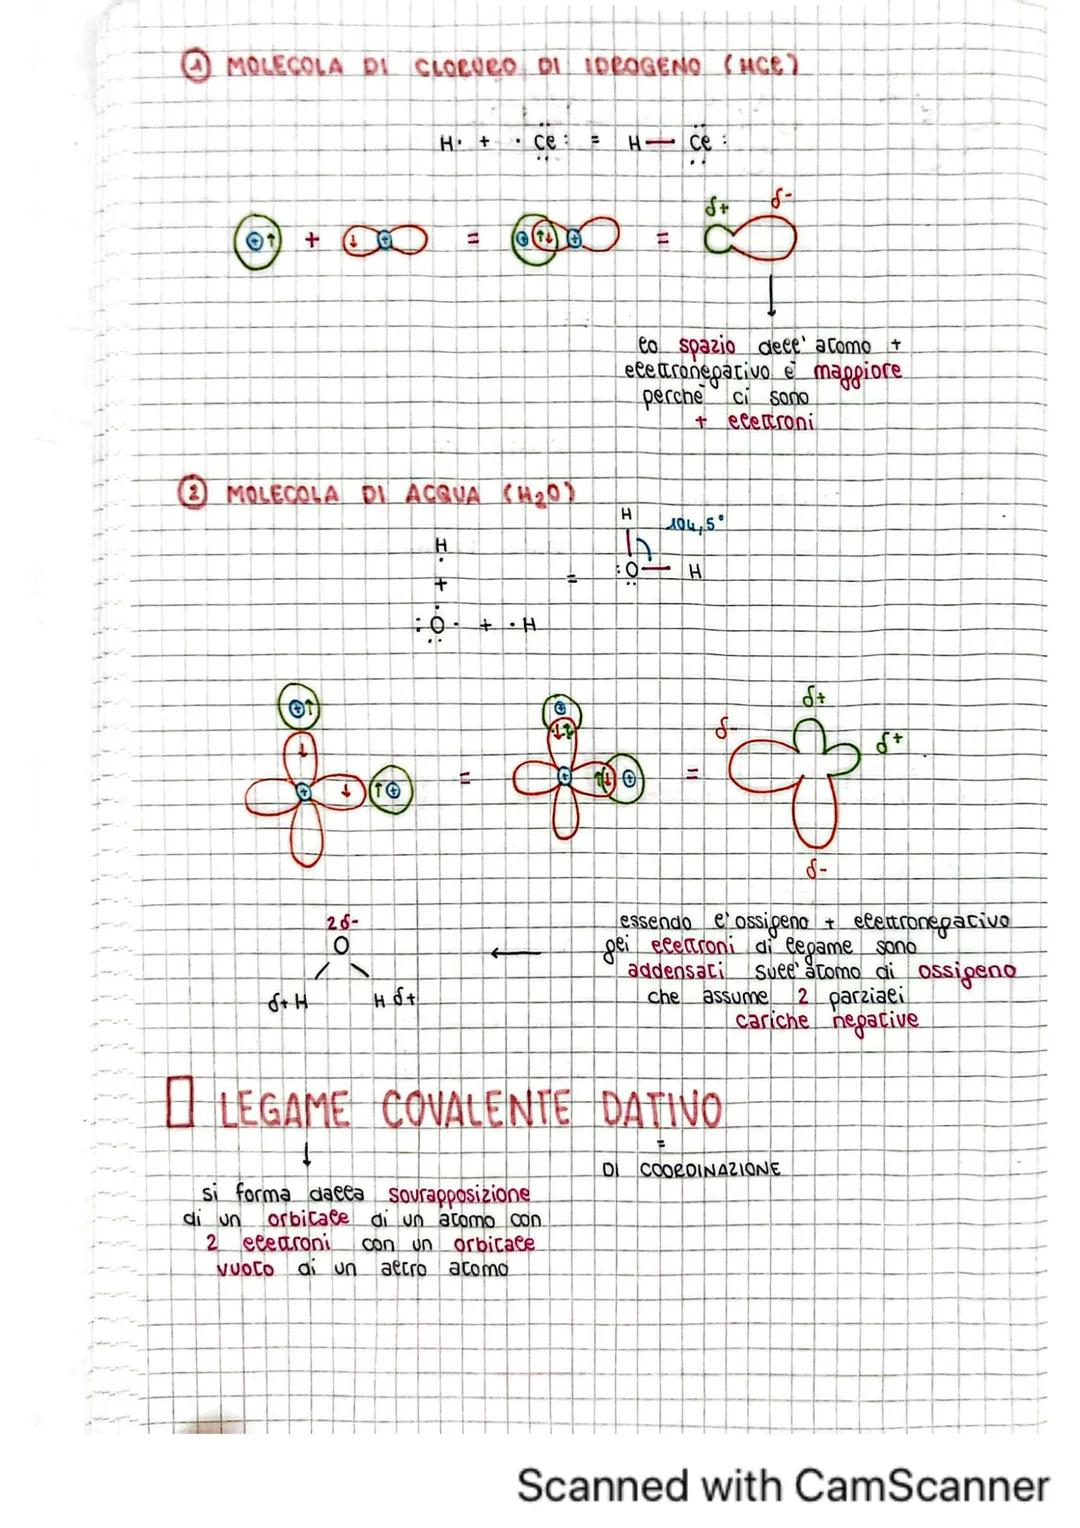 1 MOLECOLA DI CLORURO DI IDROGENO (HCl)
H· + ·Cl: = H — Cl:
+ = =
δ+ δ-
lo spazio dell'atomo +
elettronegativo è maggiore
perchè ci sono
+ elettroni
2 MOLECOLA DI ACQUA (H2O)
H
104,5°
H
+ = :O — H
:O· + ·H
δ+
δ- δ+
= =
δ-
2δ-
O
δ+ H H δ+
essendo l'ossigeno + elettronegativo
gli elettroni di legame sono
addensati sull'atomo di ossigeno
che assume 2 parziali
cariche negative
LEGAME COVALENTE DATIVO
=
DI COORDINAZIONE
si forma dalla sovrapposizione
di un orbitale di un atomo con
2 elettroni con un orbitale
vuoto di un altro atomo
Scanned with CamScanner